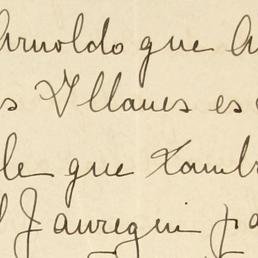 Arnoldo que A
s Yllanes es
le que tamb
l Jauregui pa